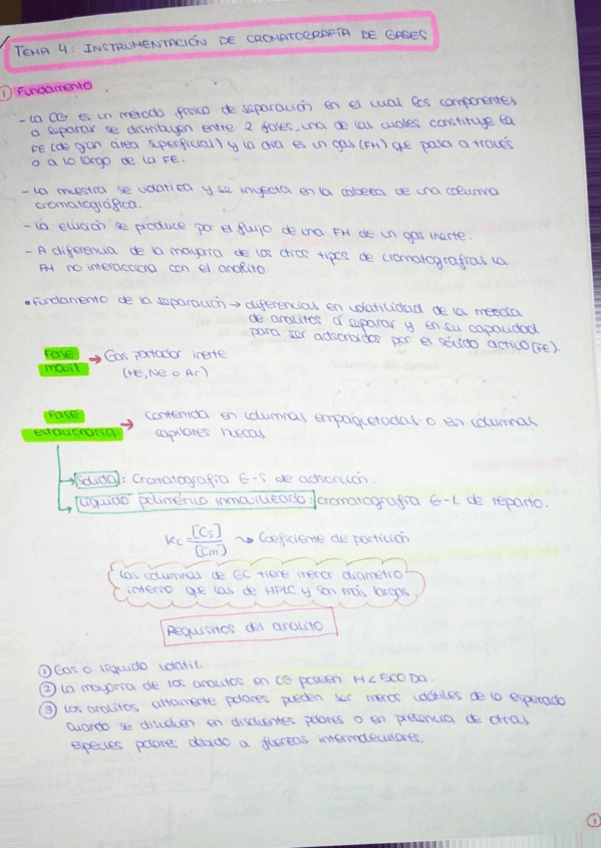 TEMA 4: INSTRUMENTACIÓN DE CROMATOGRAFÍA DE GASES
① Fundamento
- La CG es un método físico de separación en el cual los componentes
a separar se distribuyen entre 2 fases, una de las cuales constituye la
FE (de gran área superficial) y la otra es un gas (FM) que pasa a través
o a lo largo de la FE.
- La muestra se volatiliza y se inyecta en la cabeza de una columna
cromatográfica.
- La elución se produce por el flujo de una FM de un gas inerte.
- A diferencia de la mayoría de los otros tipos de cromatografías la
FM no interacciona con el analito
• Fundamento de la separación → diferencias en volatilidad de la mezcla
de analitos a separar y en su capacidad
para ser adsorbidos por el sólido activo (FE).
Fase → Gas portador inerte
móvil (He, Ne o Ar)
Fase → Contenida en columnas empaquetadas o en columnas
estacionaria capilares huecas
→ Sólida: Cromatografía G-S de adsorción.
→ Líquido polimérico inmovilizado: cromatografía G-L de reparto.
Kc = [Cs] / [Cm] → Coeficiente de partición
Las columnas de GC tiene menor diámetro
interno que las de HPLC y son más largas.
Requisitos del analito
① Gas o líquido volátil.
② La mayoría de los analitos en CG poseen M < 500 Da.
③ Los analitos altamente polares pueden ser menos volátiles de lo esperado
cuando se disuelven en disolventes polares o en presencia de otras
especies polares debido a fuerzas intermoleculares.
①